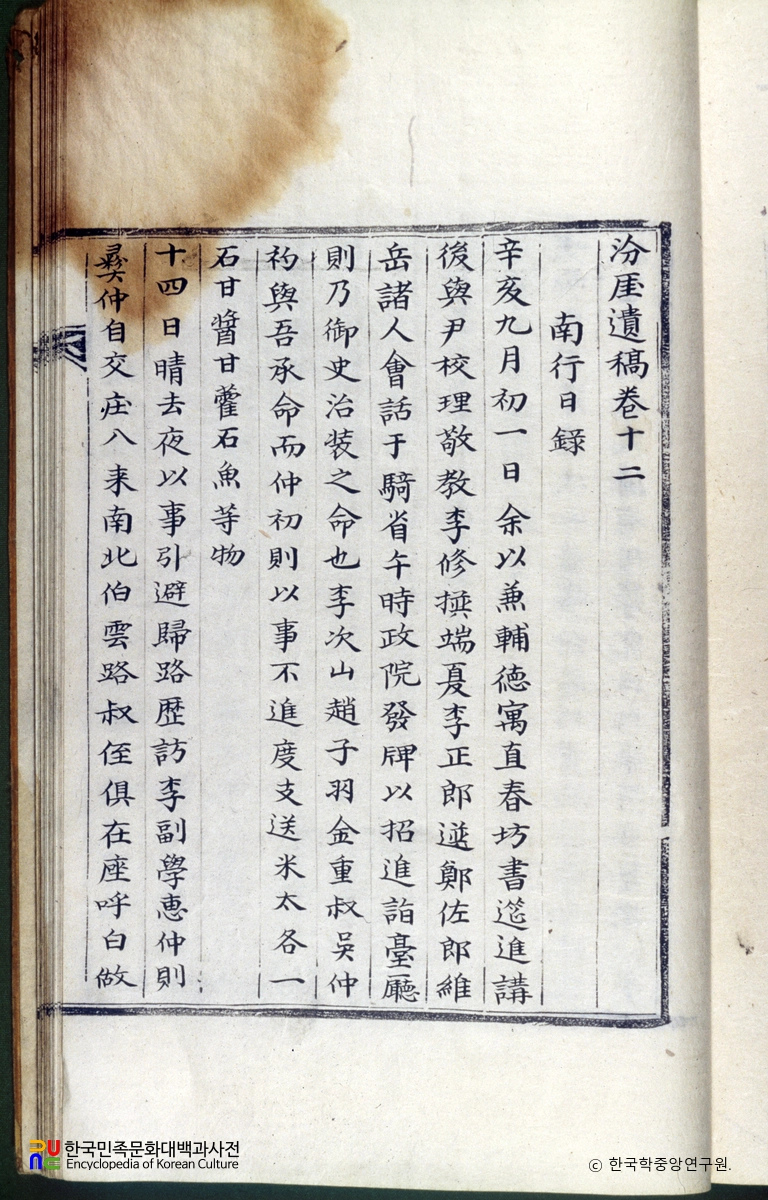 汾厓遺稿卷十二
南行日錄
辛亥九月初一日余以兼輔德寓直春坊書筵進講
後與尹校理敬教李修撰端夏李正郎䢘鄭佐郎維
岳諸人會話于騎省午時政院發牌以招進詣臺廳
則乃御史治裝之命也李次山趙子羽金重叔吳仲
礿與吾承命而仲初則以事不進度支送米太各一
石甘醬甘藿石魚等物
十四日晴去夜以事引避歸路歷訪李副學惠仲則
彛仲自交庄八来南北伯雲路叔侄俱在座呼白做
한국민족문화대백과사전
Encyclopedia of Korean Culture
© 한국학중앙연구원.